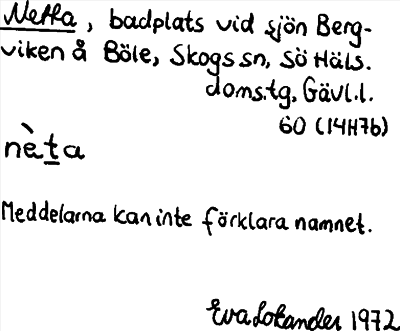 Netta, badplats vid sjön Berg-
viken å Böle, Skogs sn, Sö Häls.
doms.tg, Gävl.l.
60 (14H7b)
nèṯa
Meddelarna kan inte förklara namnet.
Eva Lokander 1972